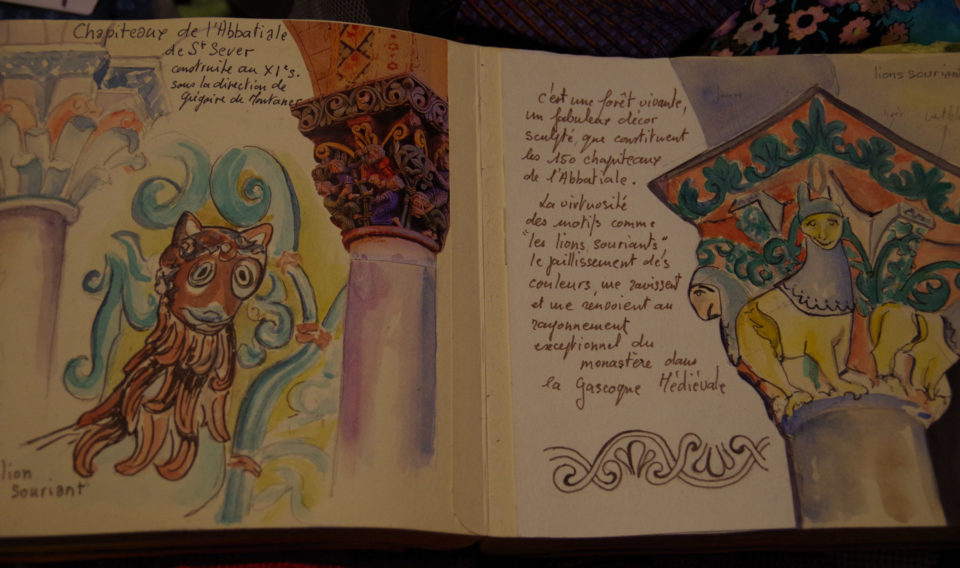 Chapiteaux de l'Abbatiale
de St Sever
construite au XIe s.
sous la direction de
Grégoire de Montaner
lion
souriant
c'est une forêt vivante,
un fabuleux décor
sculpté, que constituent
les 150 chapiteaux
de l'Abbatiale.
La virtuosité
des motifs comme
"les lions souriants"
le jaillissement des
couleurs, me ravissent
et me renvoient au
rayonnement
exceptionnel du
monastère dans
la Gascogne Médiévale
lions souriant